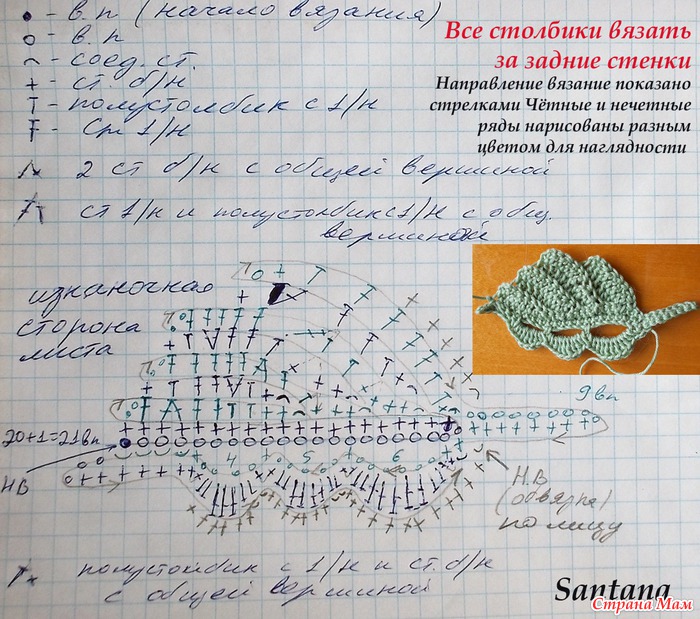 - в.п (начало вязания)
- в.п
- соед. ст.
- ст. б/н
- полустолбик с 1/н
- Ст 1/н
2 ст б/н с общей вершиной
ст 1/н и полустолбик с 1/н с общ.
вершиной
Все столбики вязать
за задние стенки
Направление вязание показано
стрелками Чётные и нечетные
ряды нарисованы разным
цветом для наглядности
изнаночная
сторона
листа
20+1=21вп
НВ
9 вп
4 5 6
Н.В
(обвязка)
по лицу
полустолбик с 1/н и ст. б/н
с общей вершиной
Santana
Страна Мам